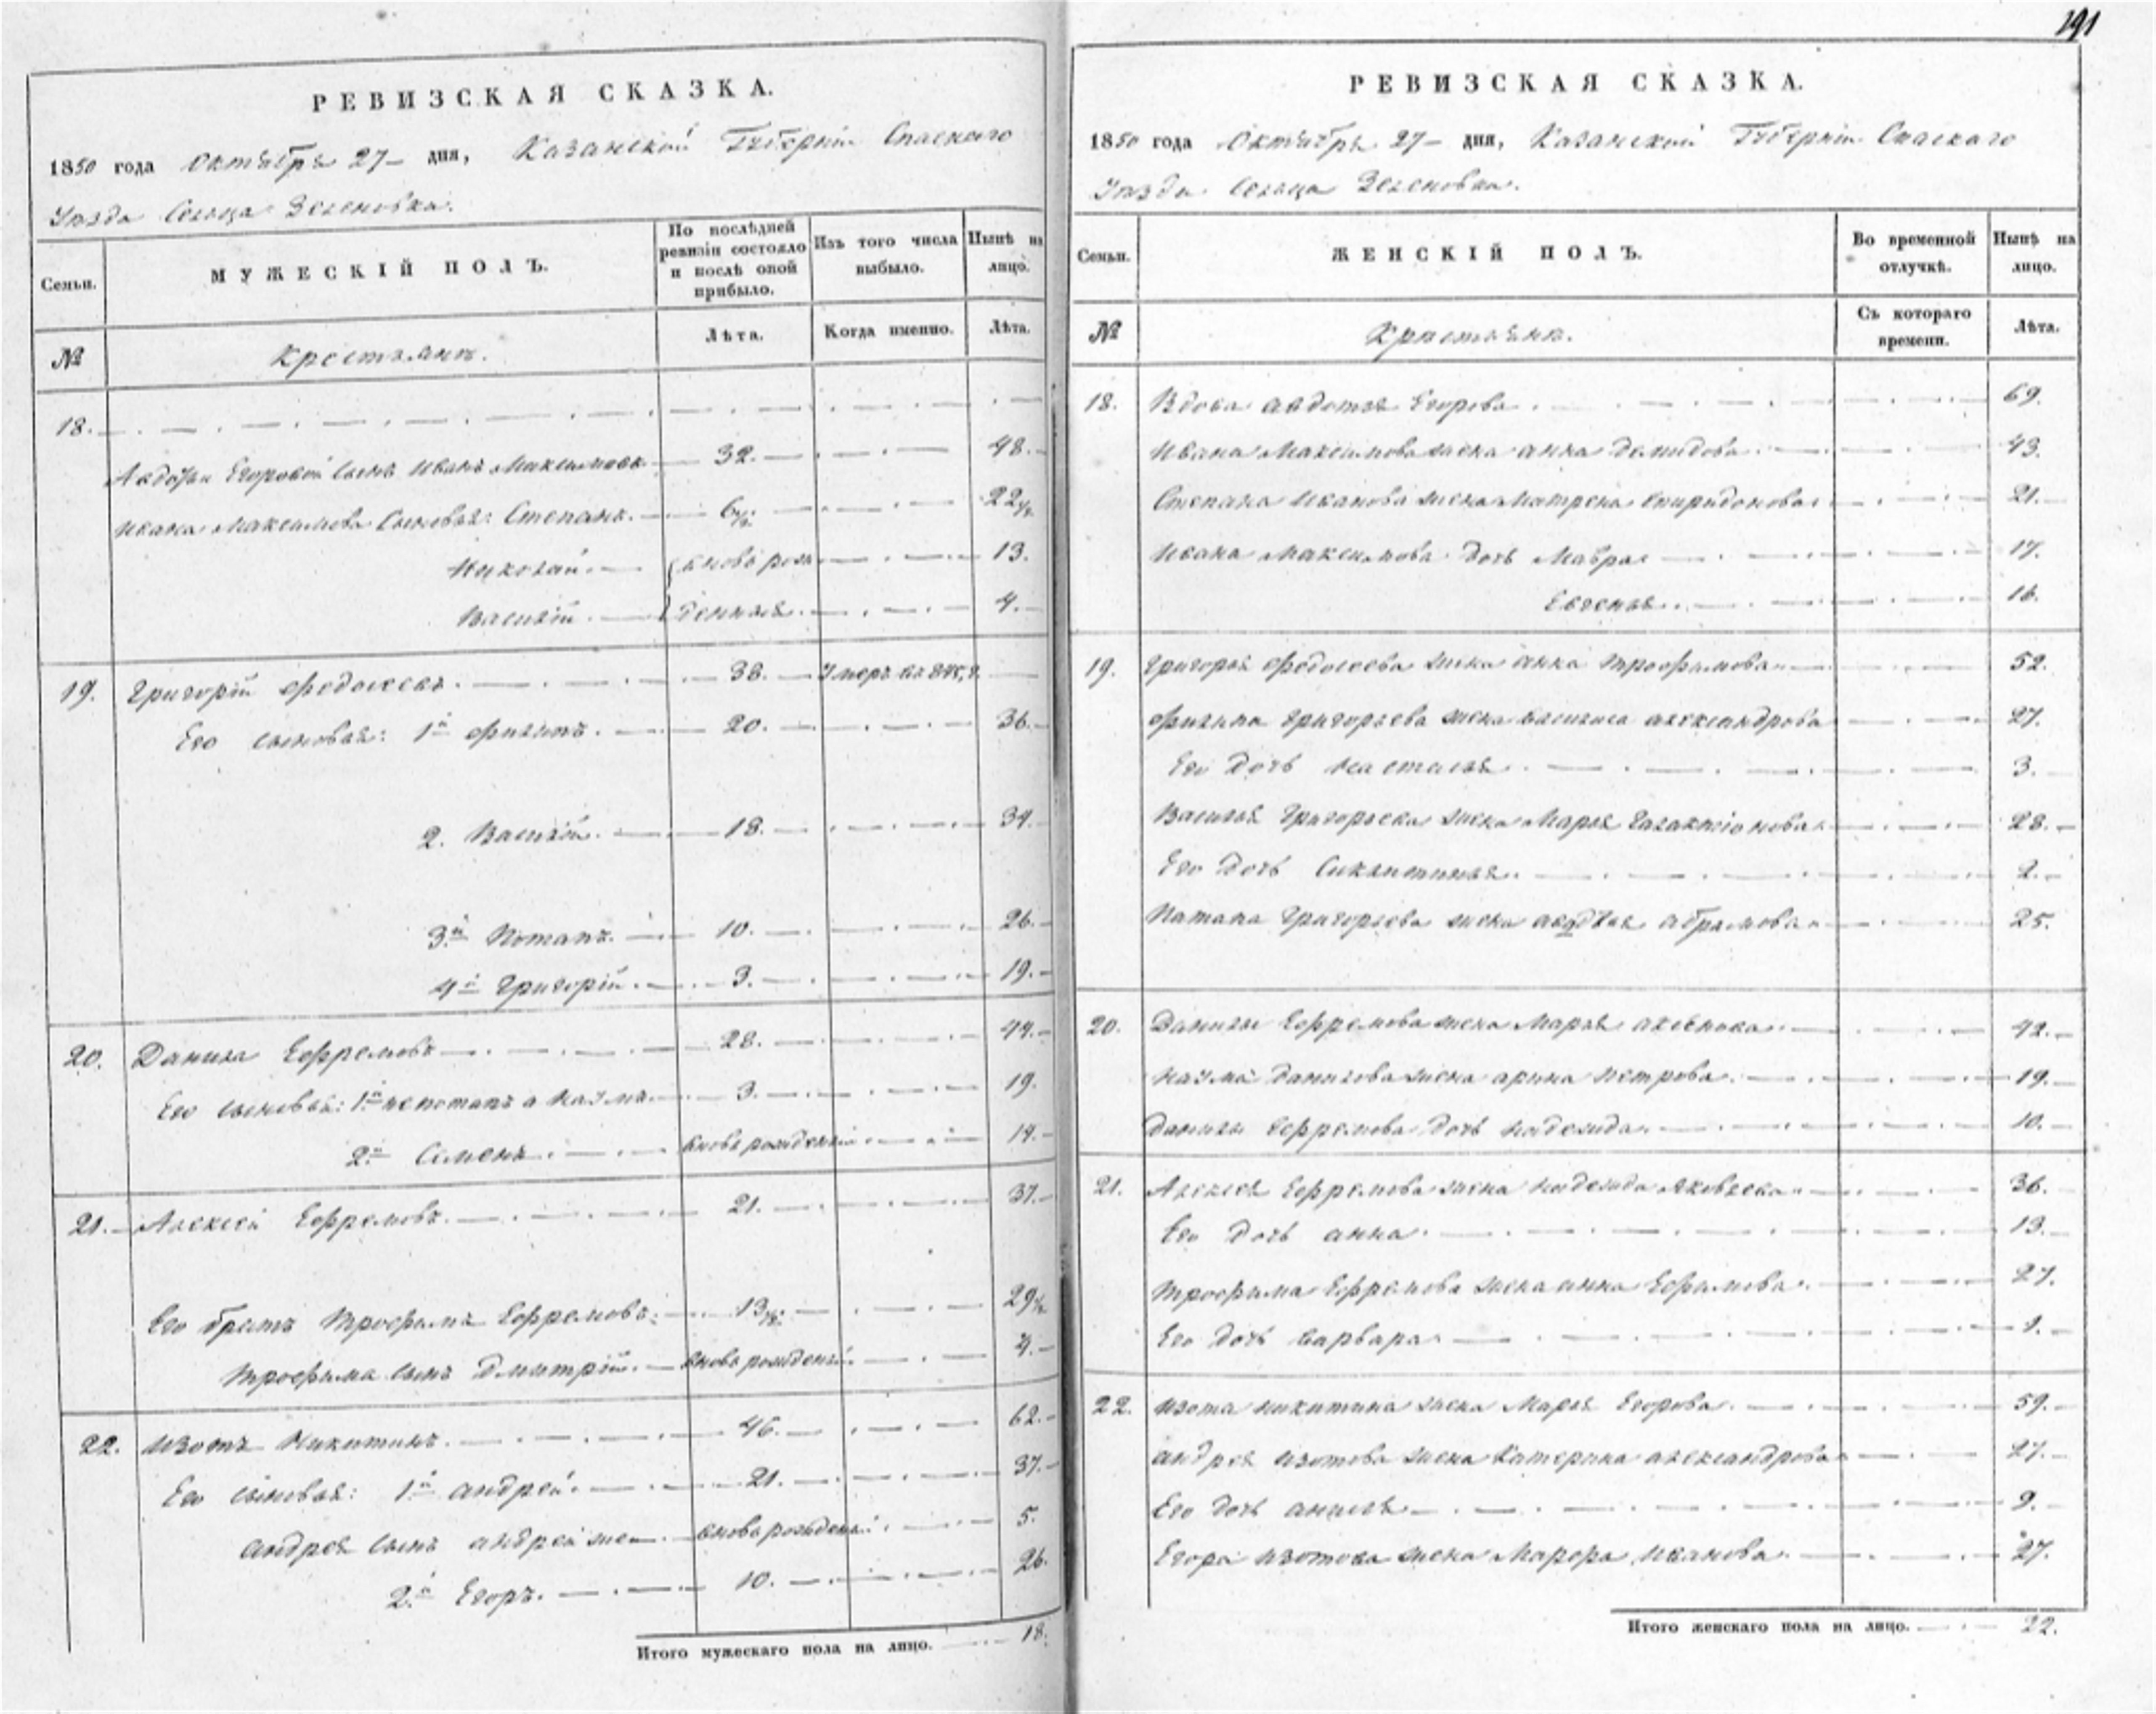 191
РЕВИЗСКАЯ СКАЗКА.
1850 года Октября 27 – дня, Казанской Губерніи Спаскаго
Уѣзда Сельца Зеленовка.
Семьи.
МУЖЕСКІЙ ПОЛЪ.
По послѣдней ревизіи состояло и послѣ оной прибыло.
Изъ того числа выбыло.
Нынѣ на лицо.
№
Крестьянъ.
Лѣта.
Когда именно.
Лѣта.
18.
Авдотьи Егоровой сынъ Иванъ Максимовъ 32. 48.
Ивана Максимова сыновья: Степанъ. 6½. 22½
Николай. вновь рож 13.
Василій. денныя. 4.
19. Григорій Федосеевъ. 38. Умеръ въ 845, г.
Его сыновья: 1й Филипъ. 20. 36.
2. Василій. 18. 34.
3й Потапъ. 10. 26.
4й Григорій. 3. 19.
20. Данила Ефремовъ 28. 44.
Его сыновья: 1й не потапъ а Наумъ. 3. 19.
2й Семенъ. вновь рожденный 14.
21. Алексей Ефремовъ. 21. 37.
Его братъ Трофимъ Ефремовъ: 13½. 29½
Трофима сынъ Дмитрій. вновь рожденый. 4.
22. Изотъ Никитинъ. 46. 62.
Его сыновья: 1й андрей. 21. 37.
андрея сынъ андрей же вновь рожденый. 5.
2й Егоръ. 10. 26.
Итого мужескаго пола на лицо. 18.
РЕВИЗСКАЯ СКАЗКА.
1850 года Октября 27 – дня, Казанской Губерніи Спаскаго
Уѣзда Сельца Зеленовка.
Семьи.
ЖЕНСКІЙ ПОЛЪ.
Во временной отлучкѣ.
Нынѣ на лицо.
№
Крестьянъ.
Съ котораго времени.
Лѣта.
18. Вдова авдотья Егорова. 69.
Ивана Максимова жена анна демидова. 43.
Степана Иванова жена Матрена Спиридонова 21.
Ивана Максимова дочь Мавра 17.
Евгенья. 16.
19. Григорья Федосеева жена анна трофимова 52.
Филипа Григорьева жена василиса александрова 27.
Его дочь настасья. 3.
Василья Григорьева жена Марья Галактіонова 28.
Его дочь Сиклитинья. 2.
Патапа Григорьева жена авдотья абрамова 25.
20. Данилы Ефремова жена Марья 42.
Наума данилова жена арина петрова. 19.
Данилы Ефремова дочь надежда. 10.
21. Алексея Ефремова жена надежда Яковлева 36.
Его дочь анна. 13.
Трофима Ефремова жена анна Ефимова. 27.
Его дочь варвара 1.
22. Изота никитина жена Марья Егорова. 59.
андрея изотова жена Катерина александрова 27.
Его дочь анисья 9.
Егора изотова жена Марфа Иванова. 27.
Итого женскаго пола на лицо. 22.